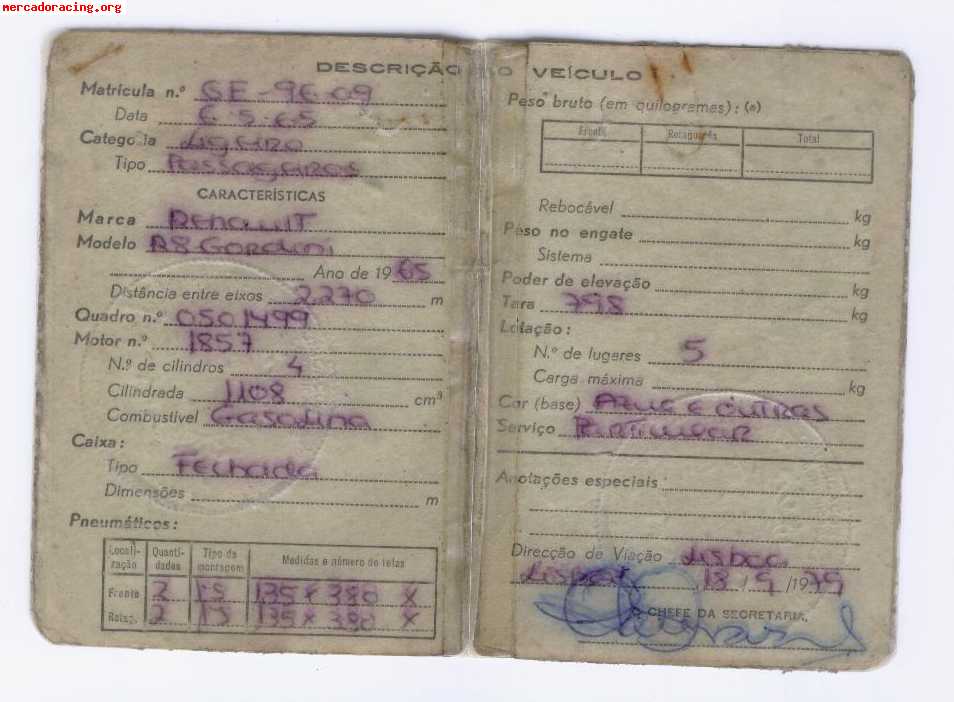 mercadoracing.org
DESCRIÇÃO DO VEÍCULO
Matrícula n.º GE-96-09
Data 6.5.65
Categoria Ligeiro
Tipo Passageiros
CARACTERÍSTICAS
Marca Renault
Modelo R8 Gordini
Ano de 1965
Distância entre eixos 2.270 m
Quadro n.º 0501499
Motor n.º 1857
N.º de cilindros 4
Cilindrada 1108 cm³
Combustível Gasolina
Caixa:
Tipo Fechada
Dimensões m
Pneumáticos:
Locali-zação Quanti-dades Tipo da montagem Medidas e número de telas
Frente 2 IS 135 x 380 X
Retag. 2 135 x 380 X
Peso bruto (em quilogramas): (a)
Frente Retaguarda Total
Rebocável kg
Peso no engate kg
Sistema
Poder de elevação kg
Tara 798 kg
Lotação:
N.º de lugares 5
Carga máxima kg
Cor (base) Azul e outras
Serviço Particular
Anotações especiais
Direcção de Viação Lisboa
Lisboa 18/9/1979
O CHEFE DA SECRETARIA,